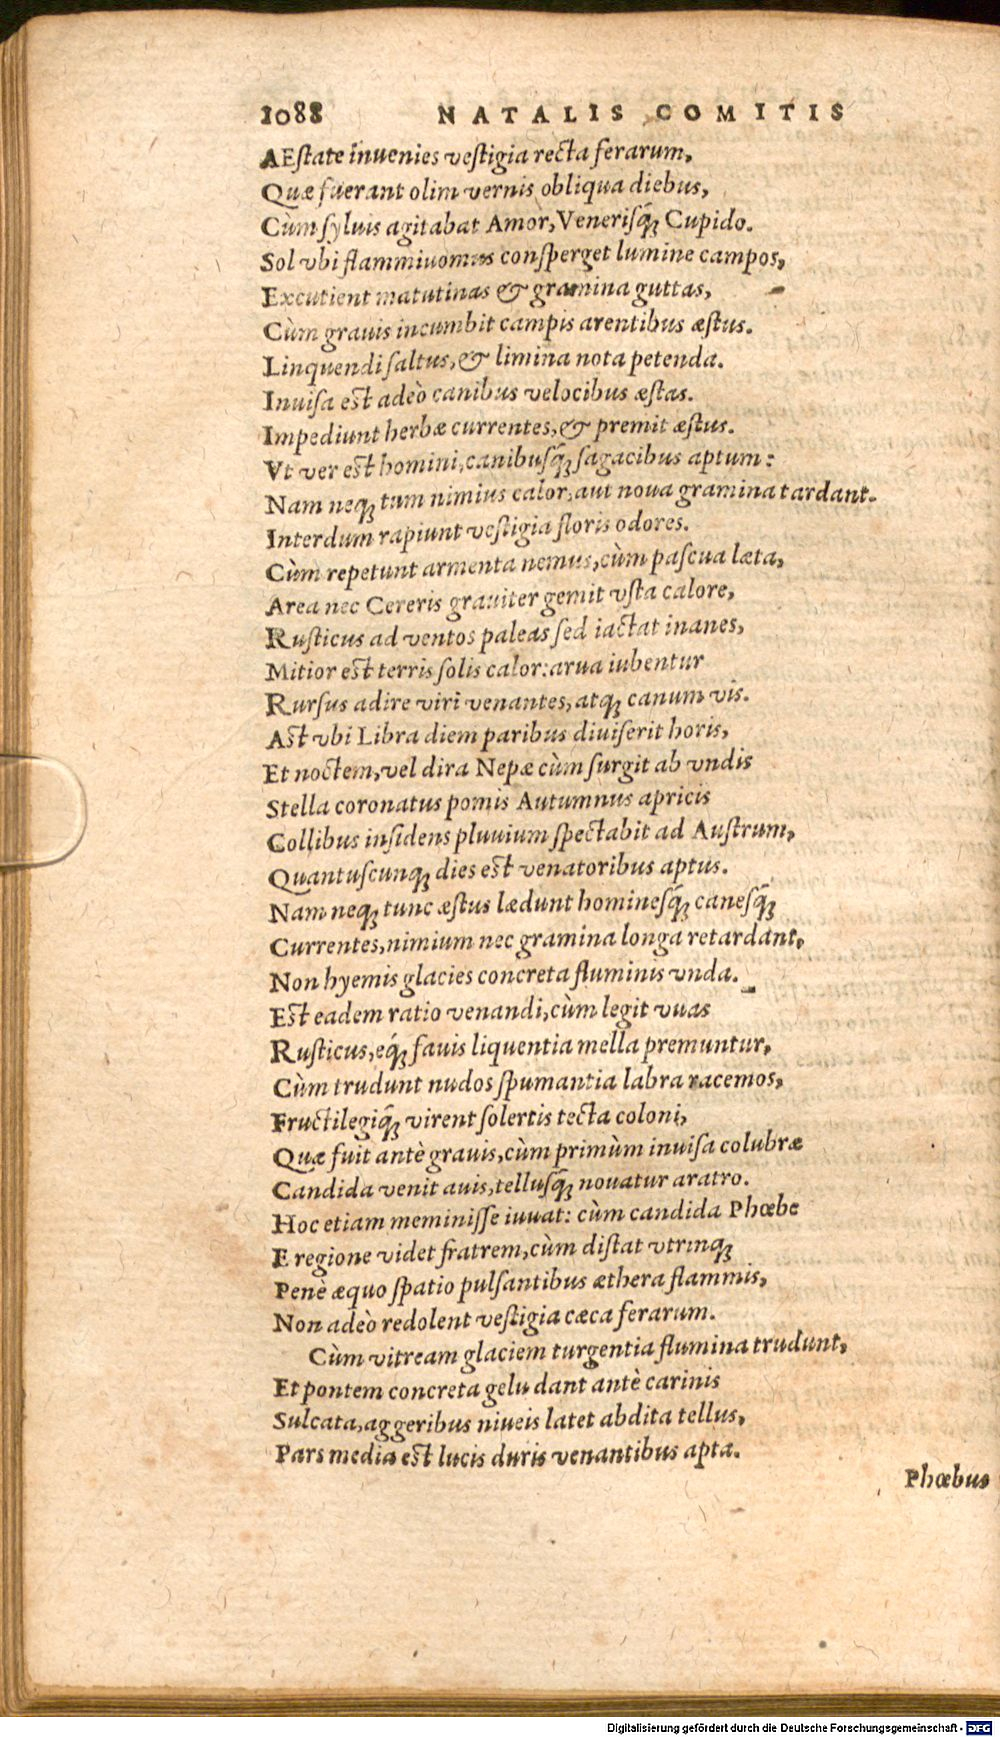 1088 NATALIS COMITIS
AEstate inuenies vestigia recta ferarum,
Quæ fuerant olim vernis obliqua diebus,
Cùm syluis agitabat Amor, Venerisq́; Cupido.
Sol vbi flammiuomus consperget lumine campos,
Excutient matutinas & gramina guttas,
Cùm grauis incumbit campis arentibus æstus.
Linquendi saltus, & limina nota petenda.
Inuisa est adeò canibus velocibus æstas.
Impediunt herbæ currentes, & premit æstus.
Vt ver est homini, canibusq́; sagacibus aptum:
Nam neq; tum nimius calor, aut noua gramina tardant.
Interdum rapiunt vestigia floris odores.
Cùm repetunt armenta nemus, cùm pascua læta,
Area nec Cereris grauiter gemit vsta calore,
Rusticus ad ventos paleas sed iactat inanes,
Mitior est terris solis calor: arua iubentur
Rursus adire viri venantes, atq; canum vis.
Ast vbi Libra diem paribus diuiserit horis,
Et noctem, vel dira Nepæ cùm surgit ab vndis
Stella coronatus pomis Autumnus apricis
Collibus insidens pluuium spectabit ad Austrum,
Quantuscunq; dies est venatoribus aptus.
Nam neq; tunc æstus lædunt hominesq́; canesq́;
Currentes, nimium nec gramina longa retardant,
Non hyemis glacies concreta fluminis vnda.
Est eadem ratio venandi, cùm legit vuas
Rusticus, eq́; fauis liquentia mella premuntur,
Cùm trudunt nudos spumantia labra racemos,
Fructilegiq́; virent solertis tecta coloni,
Quæ fuit antè grauis, cùm primùm inuisa colubræ
Candida venit auis, tellusq́; nouatur aratro.
Hoc etiam meminisse iuuat: cùm candida Phœbe
E regione videt fratrem, cùm distat vtrinq;
Penè æquo spatio pulsantibus æthera flammis,
Non adeò redolent vestigia cæca ferarum.
Cùm vitream glaciem turgentia flumina trudunt,
Et pontem concreta gelu dant antè carinis
Sulcata, aggeribus niueis latet abdita tellus,
Pars media est lucis duris venantibus apta.
Phœbus
Digitalisierung gefördert durch die Deutsche Forschungsgemeinschaft - DFG